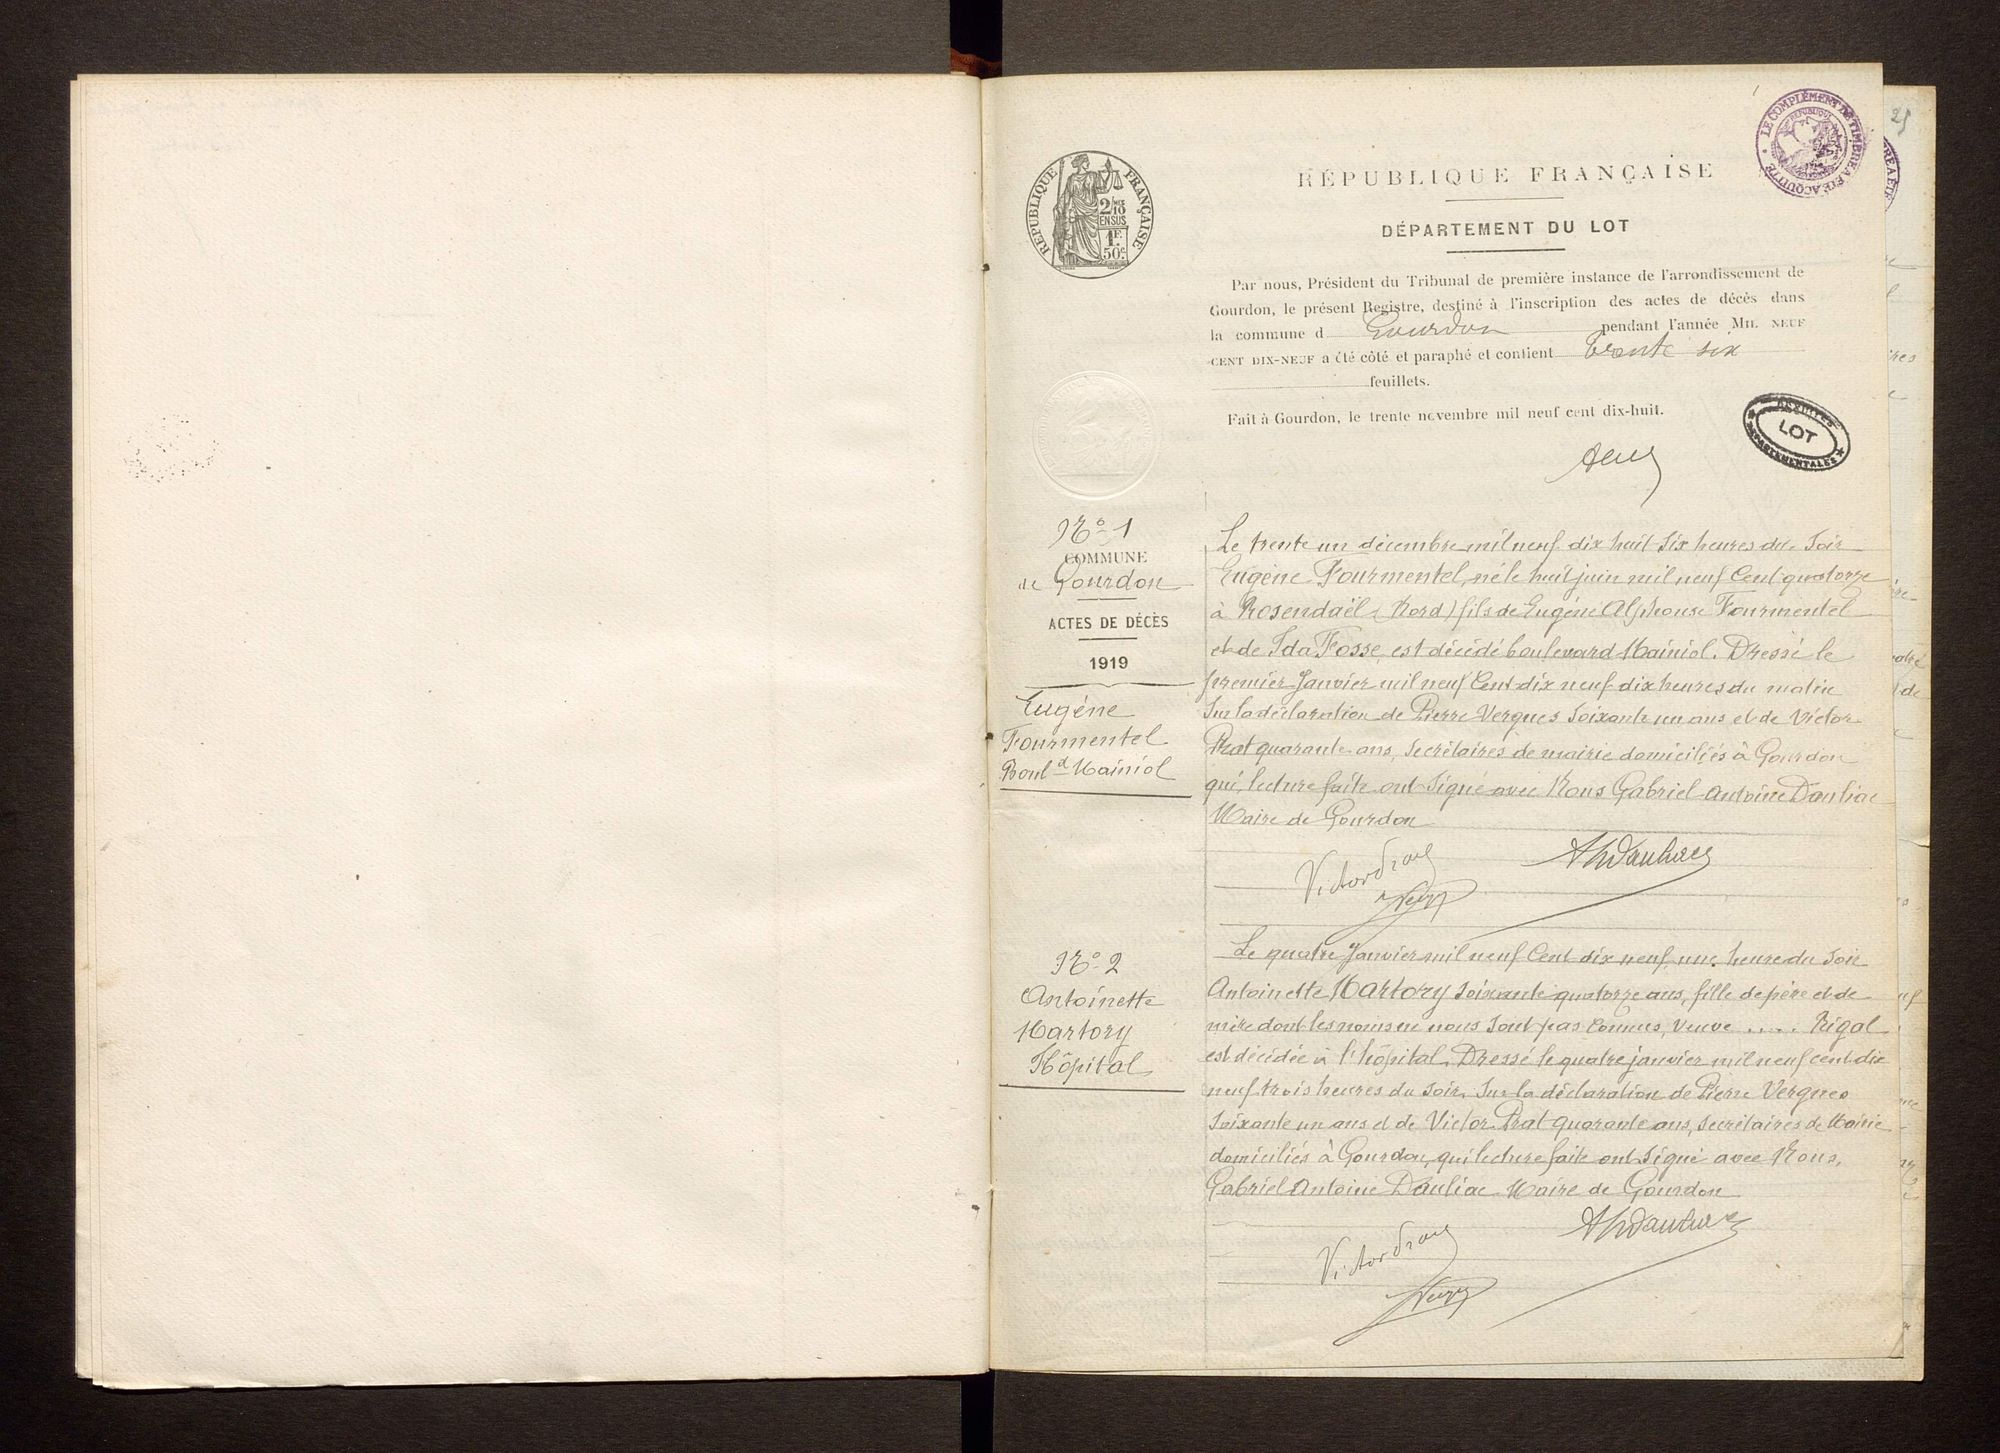 25
LE COMPLÉMENT DE TIMBRE A ÉTÉ ACQUITTÉ
RÉPUBLIQUE FRANÇAISE
2/10
EN SUS
1F.
50c.
RÉPUBLIQUE FRANÇAISE
DÉPARTEMENT DU LOT
Par nous, Président du Tribunal de première instance de l'arrondissement de
Gourdon, le présent Registre, destiné à l'inscription des actes de décès dans
la commune d Gourdon pendant l'année MIL NEUF
CENT DIX-NEUF a été côté et paraphé et contient trente six
feuillets.
Fait à Gourdon, le trente novembre mil neuf cent dix-huit.
ARCHIVES
LOT
DÉPARTEMENTALES
No 1
COMMUNE
de Gourdon
ACTES DE DÉCÈS
1919
Eugène
Fourmentel
Boul.d Mainiol
Le trente un décembre mil neuf dix huit six heures du soir
Eugène Fourmentel, né le huit juin mil neuf Cent quatorze
à Rosendaël (Nord) fils de Eugène Alphonse Fourmentel
et de Ida Fosse, est décédé boulevard Mainiol. Dressé le
premier Janvier mil neuf Cent dix neuf dix heures du matin
Sur la déclaration de Pierre Vergnes Soixante un ans et de Victor
Prat quarante ans, Secrétaires de mairie domiciliés à Gourdon
qui, lecture faite ont Signé avec Nous Gabriel Antoine Dauliac
Maire de Gourdon
Victor Prat
No 2
Antoinette
Martory
Hôpital
Le quatre Janvier mil neuf Cent dix neuf, une heure du Soir
Antoinette Martory Soixante quatorze ans, fille de père et de
mère dont les noms ne nous Sont pas Connus, Veuve ..... Rigal
est décédée à l'hôpital. Dressé le quatre janvier mil neuf cent dix
neuf trois heures du soir. Sur la déclaration de Pierre Vergnes
Soixante un ans et de Victor Prat quarante ans, Secrétaires de Mairie
domiciliés à Gourdon, qui lecture faite ont Signé avec Nous,
Gabriel Antoine Dauliac Maire de Gourdon
Victor Prat